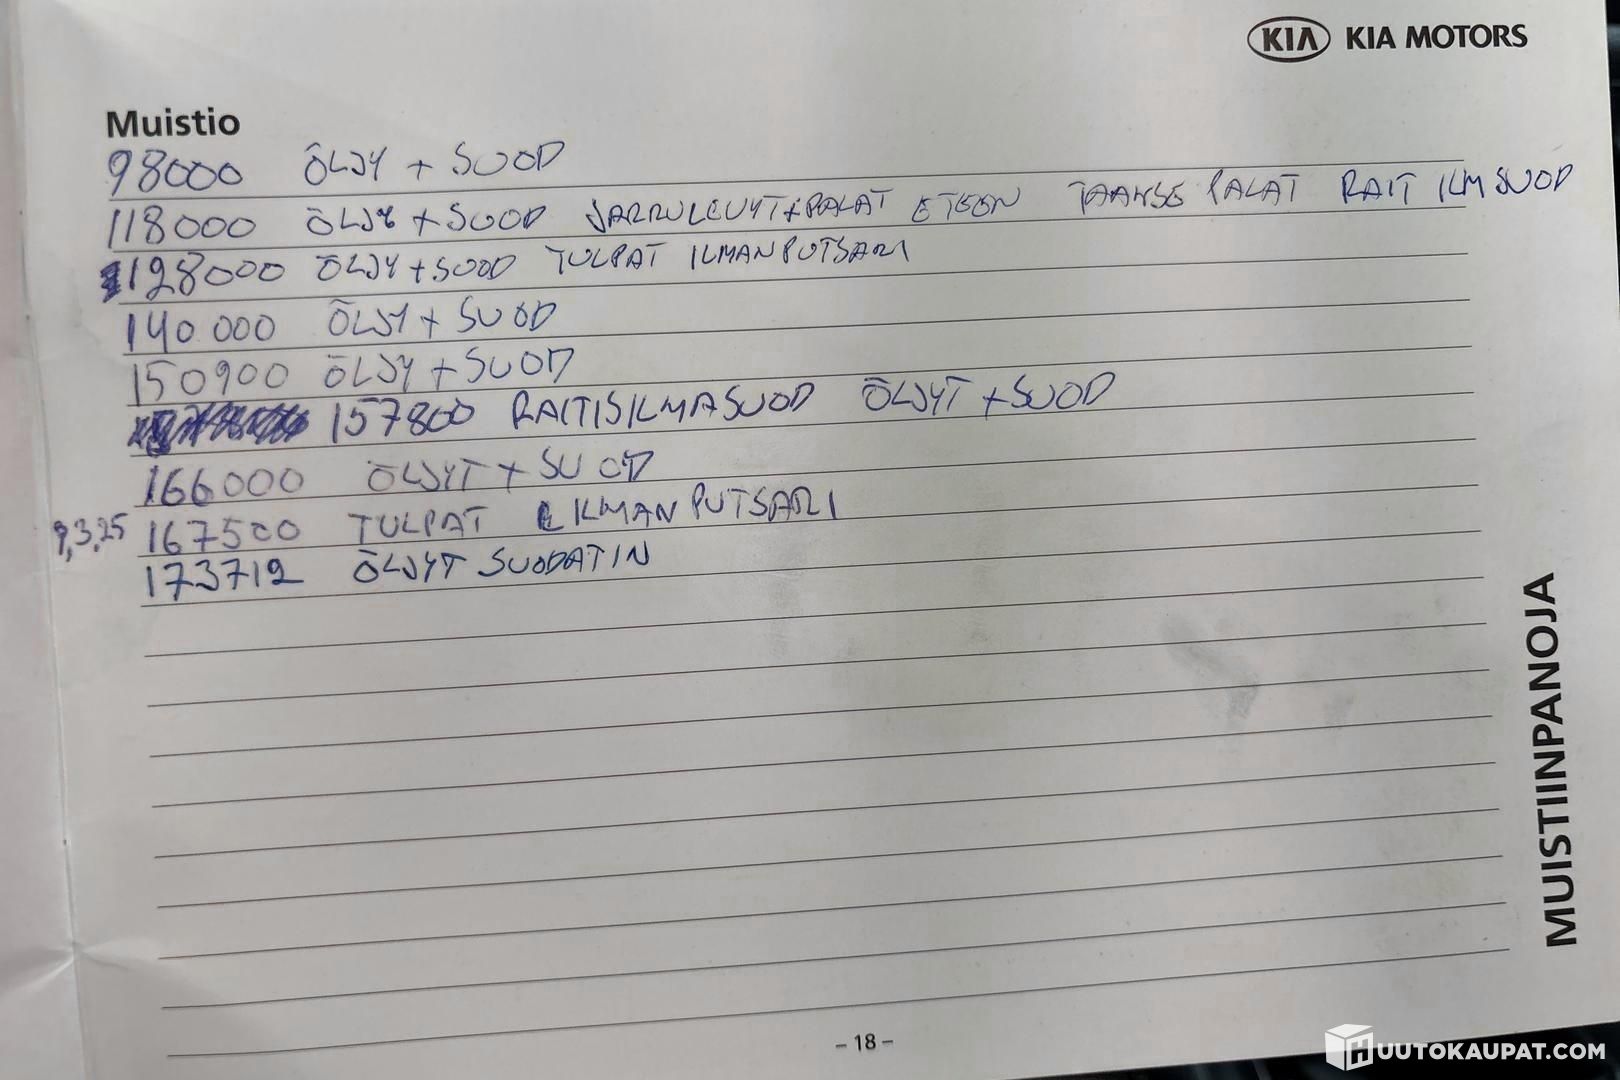 KIA KIA MOTORS
Muistio
98000 ÖLJY + SUOD
118000 ÖLJY + SUOD JARRULEVYT+PALAT ETEEN TAAKSE PALAT RAIT ILMSUOD
128000 ÖLJY + SUOD TULPAT ILMANPUTSARI
140 000 ÖLJY + SUOD
150900 ÖLJY + SUOD
157800 RAITISILMASUOD ÖLJYT + SUOD
166000 ÖLJYT + SUOD
9,3,25 167500 TULPAT ILMANPUTSARI
173712 ÖLJYT SUODATIN
MUISTIINPANOJA
- 18 -
HUUTOKAUPAT.COM